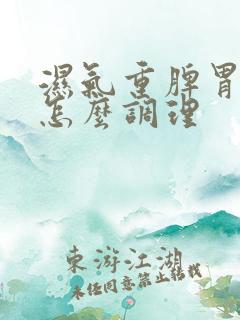 濕氣重脾胃
怎麼調理
東游江湖
未經同意禁止轉載